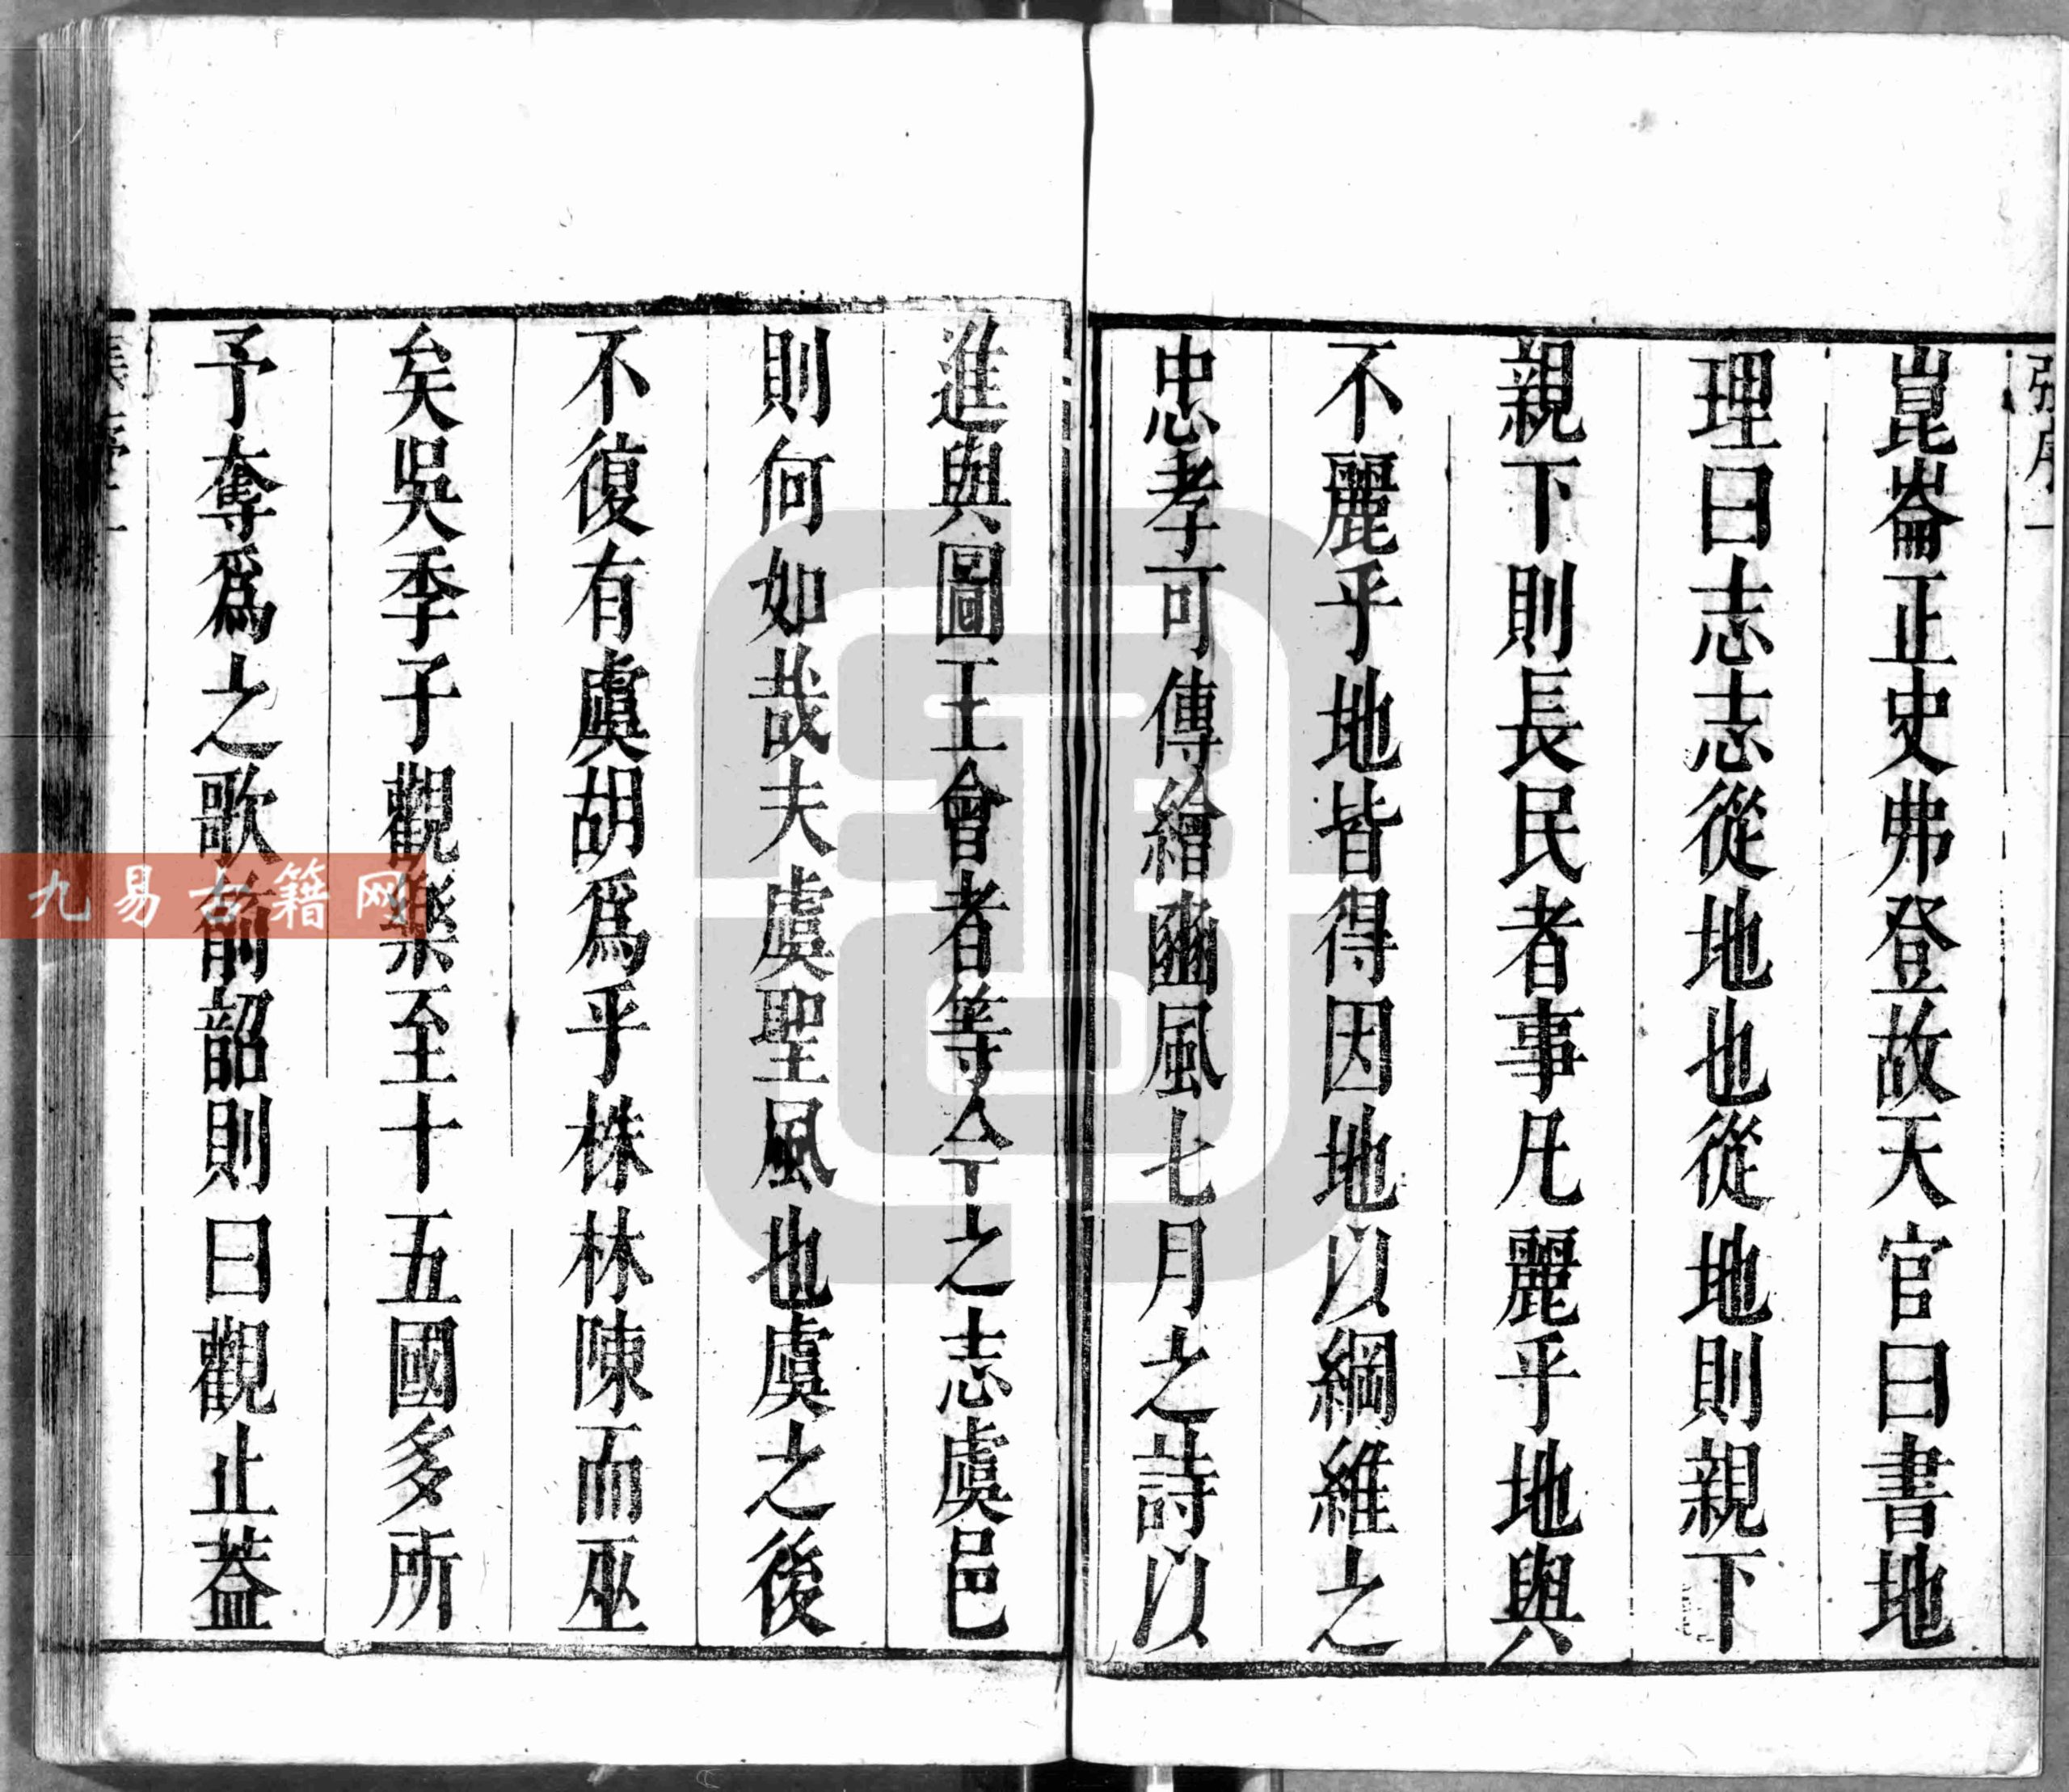 崑崙正史弗登故天官曰書地
理曰志志從地也從地則親下
親下則長民者事凡麗乎地與
不麗乎地皆得因地以綱維之
忠孝可傳繪豳風七月之詩以
進與圖王會者等今之志虞邑
則何如哉夫虞聖風也虞之後
不復有虞胡爲乎株林陳而巫
矣吳季子觀樂至十五國多所
予奪爲之歌前韶則曰觀止葢
九易古籍网